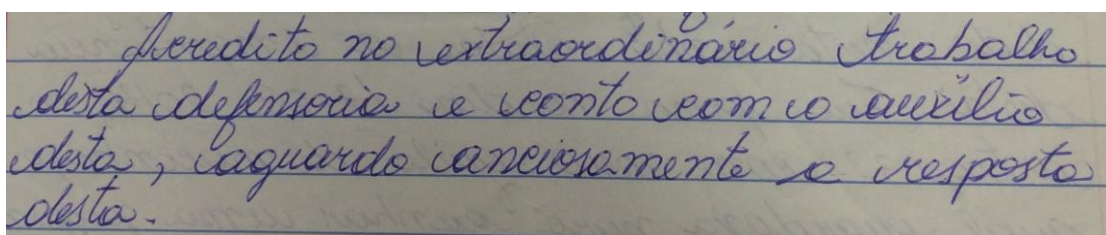 Acredito no extraordinário trabalho
desta defensoria e conto com o auxílio
desta, aguardo anciosamente a resposta
desta.